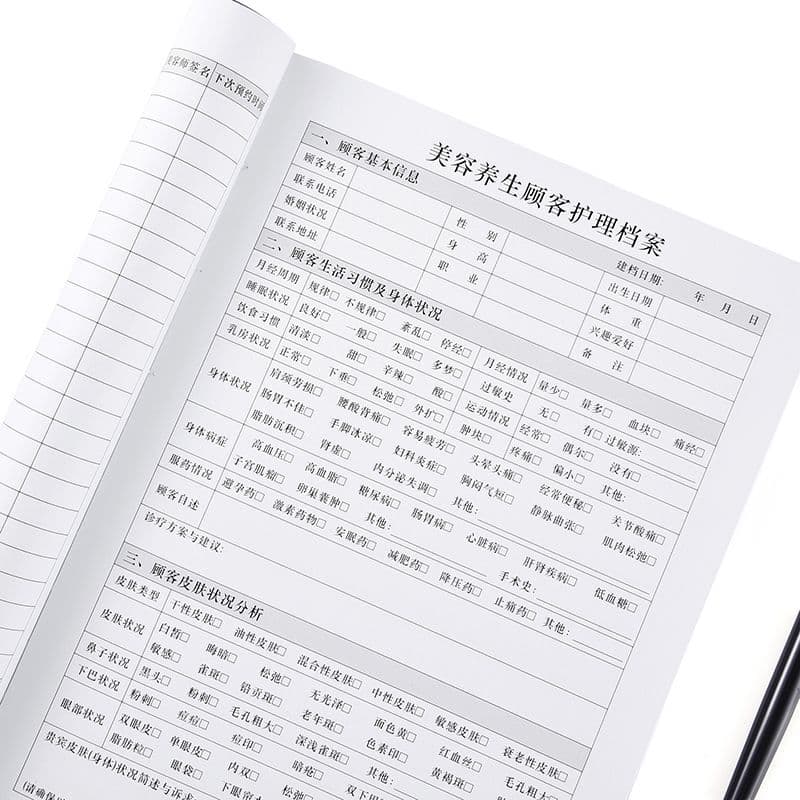 美容师签名 下次预约时间
美容养生顾客护理档案
建档日期: 年 月 日
一、顾客基本信息
顾客姓名 性 别 出生日期
联系电话 身 高 体 重
婚姻状况 职 业 兴趣爱好
联系地址 备 注
二、顾客生活习惯及身体状况
月经周期 规律□ 不规律□ 紊乱□ 停经□ 月经情况 量少□ 量多□ 血块□ 痛经□
睡眠状况 良好□ 一般□ 失眠□ 多梦□ 过敏史 无□ 有□ 过敏源:
饮食习惯 清淡□ 甜□ 辛辣□ 酸□ 运动情况 经常□ 偶尔□ 没有□
乳房状况 正常□ 下垂□ 松弛□ 外扩□ 肿块□ 疼痛□ 偏小□ 其他:
身体状况 肩颈劳损□ 腰酸背痛□ 容易疲劳□ 头晕头痛□ 经常便秘□ 关节酸痛□
肠胃不佳□ 手脚冰凉□ 妇科炎症□ 胸闷气短□ 静脉曲张□ 肌肉松弛□
脂肪沉积□ 肾虚□ 内分泌失调□ 其他:
身体病症 高血压□ 高血脂□ 糖尿病□ 肠胃病□ 心脏病□ 肝肾疾病□ 低血糖□
子宫肌瘤□ 卵巢囊肿□ 其他: 手术史:
服药情况 避孕药□ 激素药物□ 安眠药□ 减肥药□ 降压药□ 止痛药□ 其他:
顾客自述
诊疗方案与建议:
三、顾客皮肤状况分析
皮肤类型 干性皮肤□ 油性皮肤□ 混合性皮肤□ 中性皮肤□ 敏感皮肤□ 衰老性皮肤□
皮肤状况 白皙□ 晦暗□ 松弛□ 无光泽□ 面色黄□ 红血丝□ 毛孔粗大□
敏感□ 雀斑□ 铅贡斑□ 老年斑□ 色素印□ 黄褐斑□
鼻子状况 黑头□ 粉刺□ 毛孔粗大□ 深浅雀斑□ 其他:
下巴状况 粉刺□ 痘痘□ 痘印□ 暗疮□
眼部状况 双眼皮□ 单眼皮□ 内双□ 松弛□
脂肪粒□ 眼袋□
贵宾皮肤(身体)状况简述与诉求